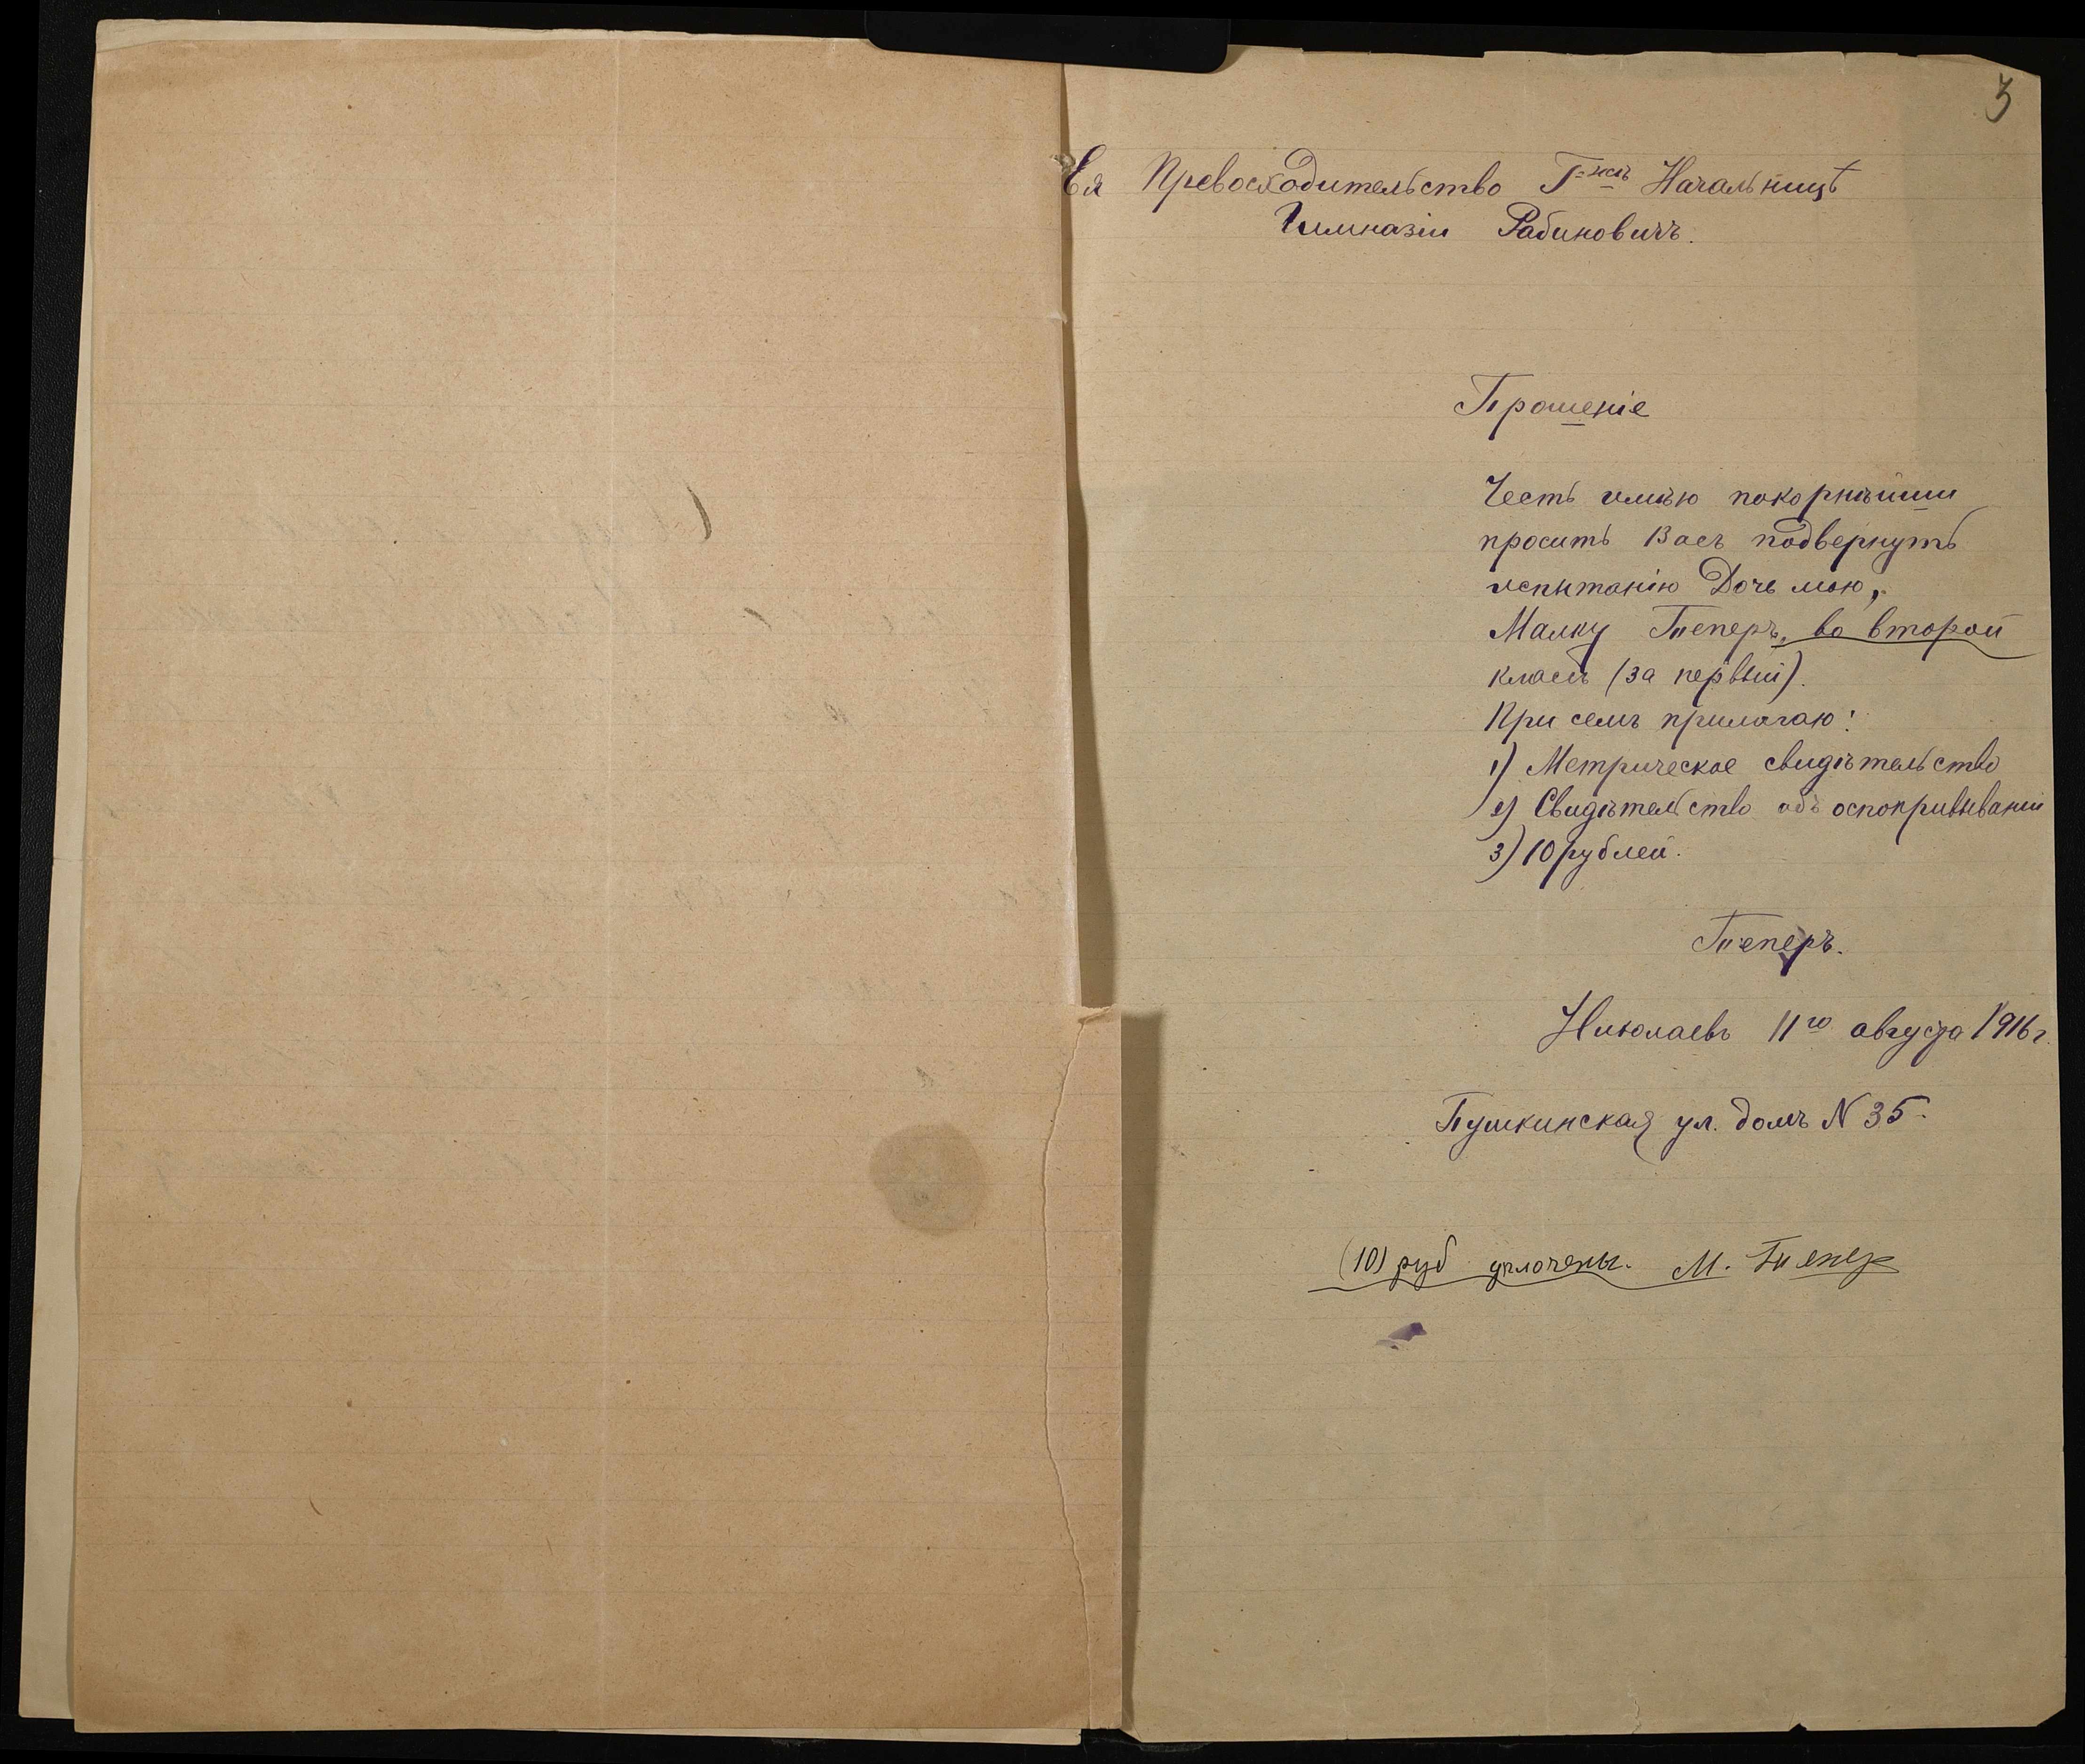 3
Ея Превосходительство Г-жѣ Начальницѣ
Гимназіи Рабиновичъ.
Прошеніе
Честь имѣю покорнѣйши
просить Васъ подвернуть
испытанію Дочь мою,
Малку Теперъ, во второй
класъ (за первый).
При семъ прилагаю:
1) Метрическое свидѣтельство
2) Свидѣтельство объ оспопривываніи
3) 10 рублей.
Теперъ.
Николаевъ 11го августа 1916 г.
Пушкинская ул. домъ N 35.
(10) руб уплочены. М. Тепер